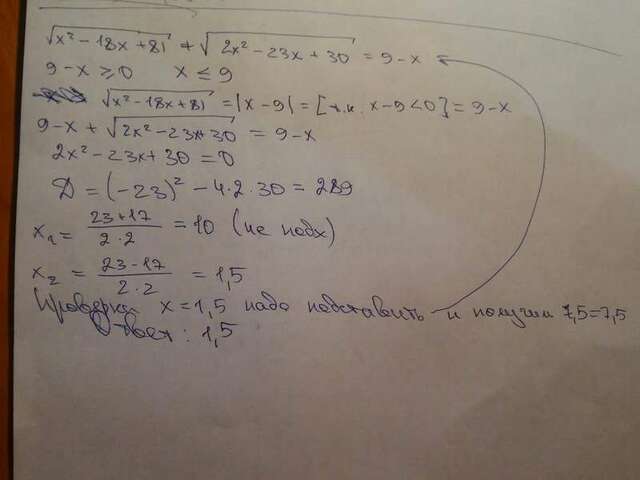 √x² - 18x + 81 + √2x² - 23x + 30 = 9 - x
9 - x ≥ 0 x ≤ 9
√x² - 18x + 81 = |x - 9| = [т.к. x - 9 < 0] = 9 - x
9 - x + √2x² - 23x + 30 = 9 - x
2x² - 23x + 30 = 0
D = (-23)² - 4·2·30 = 289
x₁ = (23 + 17)/(2·2) = 10 (не подх)
x₂ = (23 - 17)/(2·2) = 1,5
Проверка x = 1,5 надо подставить и получим 7,5 = 7,5
Ответ: 1,5